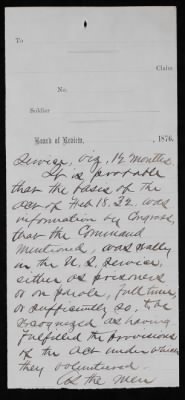 To
Claim
No.
Soldier
Board of Review, , 1876.
Service, viz, 12 months.
It is probable
that the basis of the
act of Feb. 18. 32. was
information by Congress,
that the Command
mentioned, was really
in the U. S. Service,
either as prisoners
or on parole, full time,
or sufficiently so, to be
recognized as having
fulfilled the provisions
of the Act under which
they volunteered.
As the men